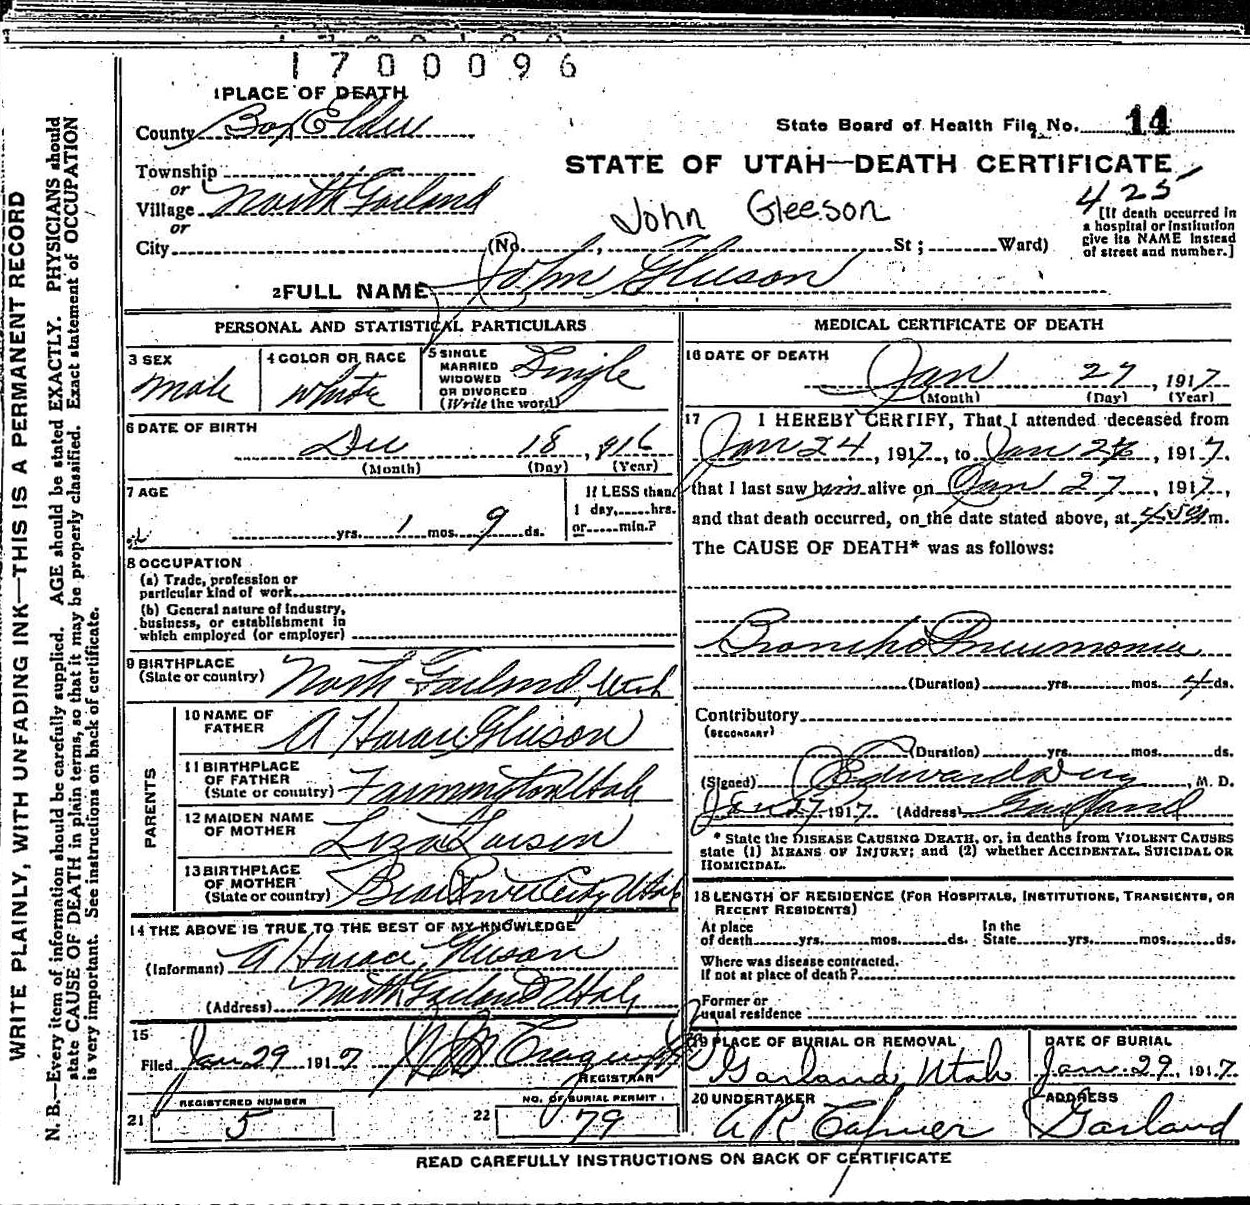 1700096
1 PLACE OF DEATH
County Box Elder
State Board of Health File No. 14
STATE OF UTAH—DEATH CERTIFICATE
Township
or
Village North Garland
or
425
John Gleeson
[If death occurred in
a hospital or institution
give its NAME instead
of street and number.]
City (No. , St ; Ward)
2 FULL NAME John Gleeson
PERSONAL AND STATISTICAL PARTICULARS
3 SEX
Male
4 COLOR OR RACE
White
5 SINGLE
MARRIED
WIDOWED
OR DIVORCED
(Write the word)
Single
6 DATE OF BIRTH
Dec 18, 1916
(Month) (Day) (Year)
7 AGE
yrs. 1 mos. 9 ds.
If LESS than
1 day, hrs.
or min.?
8 OCCUPATION
(a) Trade, profession or
particular kind of work
(b) General nature of industry,
business, or establishment in
which employed (or employer)
9 BIRTHPLACE
(State or country) North Garland, Utah
PARENTS
10 NAME OF
FATHER A Horace Gleeson
11 BIRTHPLACE
OF FATHER
(State or country) Farmington Utah
12 MAIDEN NAME
OF MOTHER Liza Larsen
13 BIRTHPLACE
OF MOTHER
(State or country) Bear River City Utah
14 THE ABOVE IS TRUE TO THE BEST OF MY KNOWLEDGE
(Informant) A Horace Gleeson
(Address) North Garland Utah
15
Filed Jan 29 1917
REGISTRAR
REGISTERED NUMBER
21 5
NO. OF BURIAL PERMIT
22 79
MEDICAL CERTIFICATE OF DEATH
16 DATE OF DEATH
Jan 27, 1917
(Month) (Day) (Year)
17 I HEREBY CERTIFY, That I attended deceased from
Jan 24, 1917, to Jan , 1917,
that I last saw him alive on Jan 27, 1917,
and that death occurred, on the date stated above, at m.
The CAUSE OF DEATH* was as follows:
Broncho Pneumonia
(Duration) yrs. mos. 4 ds.
Contributory
(SECONDARY)
(Duration) yrs. mos. ds.
(Signed) , M. D.
Jan 27 1917 (Address) Garland
* State the DISEASE CAUSING DEATH, or, in deaths from VIOLENT CAUSES
state (1) MEANS OF INJURY; and (2) whether ACCIDENTAL, SUICIDAL OR
HOMICIDAL.
18 LENGTH OF RESIDENCE (FOR HOSPITALS, INSTITUTIONS, TRANSIENTS, OR
RECENT RESIDENTS)
At place
of death yrs. mos. ds.
In the
State yrs. mos. ds.
Where was disease contracted,
If not at place of death?
Former or
usual residence
19 PLACE OF BURIAL OR REMOVAL
Garland, Utah
DATE OF BURIAL
Jan. 29, 1917.
20 UNDERTAKER
A R Capner
ADDRESS
Garland
READ CAREFULLY INSTRUCTIONS ON BACK OF CERTIFICATE
WRITE PLAINLY, WITH UNFADING INK—THIS IS A PERMANENT RECORD
N. B.—Every item of information should be carefully supplied. AGE should be stated EXACTLY. PHYSICIANS should
state CAUSE OF DEATH in plain terms, so that it may be properly classified. Exact statement of OCCUPATION
is very important. See instructions on back of certificate.